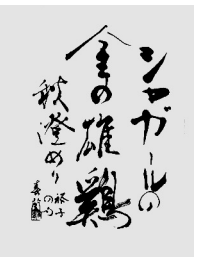 シャガールの
金の雄鶏
秋澄めり
裕子
の句